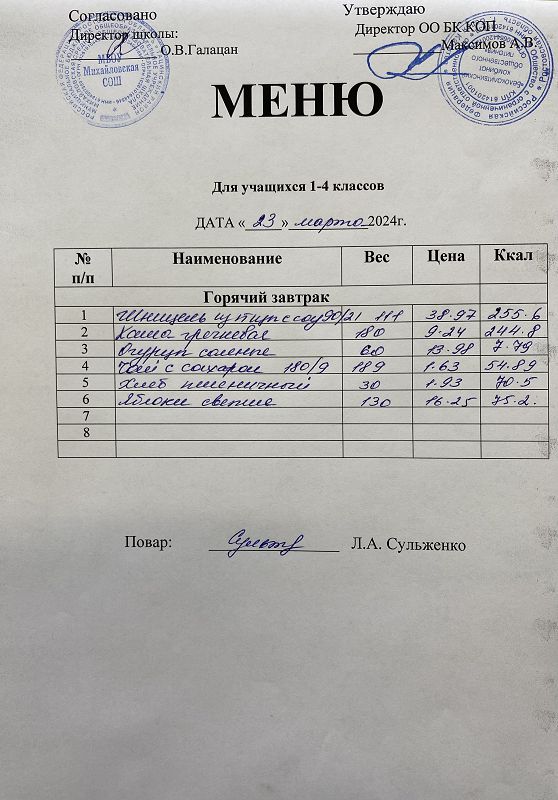 Согласовано
Утверждаю
Директор школы:
Директор ОО БК КОП
О.В.Галацан
Максимов А.В.
МБОУ
Михайловская
СОШ
МЕНЮ
Для учащихся 1-4 классов
ДАТА « 23 » марта 2024г.
№ п/п Наименование Вес Цена Ккал
Горячий завтрак
1 Шницель из птицы с соу 90/21 111 38.97 255.6
2 Каша гречневая 180 9.24 244.8
3 Огурцы соленые 60 13.98 7.79
4 Чай с сахаром 180/9 189 1.63 54.89
5 Хлеб пшеничный 30 1.93 70.5
6 Яблоки свежие 130 16.25 75.2.
7
8
Повар: Л.А. Сульженко